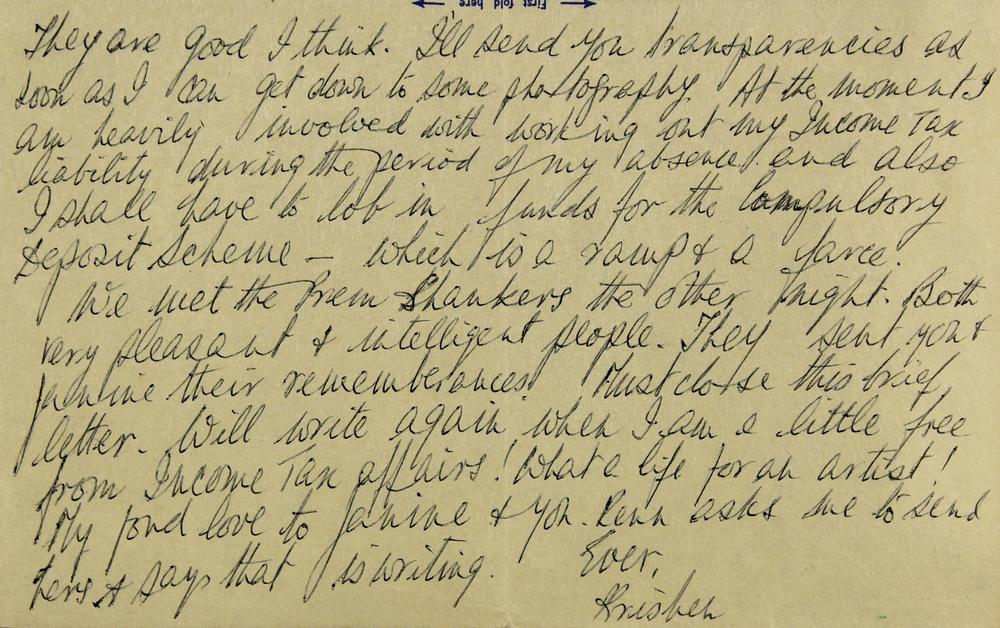 First fold here
They are good I think. I'll send you transparencies as
soon as I can get down to some photography. At the moment I
am heavily involved with working out my Income Tax
liability during the period of my absence and also
I shall have to lob in funds for the Compulsory
Deposit Scheme — which is a ramp & a farce.
We met the Prem Shankers the other night. Both
very pleasant & intelligent people. They sent you &
Janine their rememberances. Must close this brief
letter. Will write again when I am a little free
from Income Tax affairs! What a life for an artist!
My fond love to Janine & you. Renu asks me to send
hers & says that is writing. Ever,
Krishen